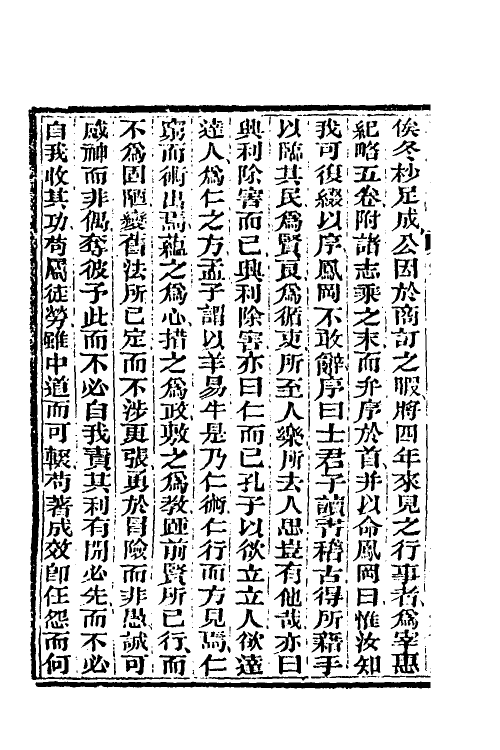 俟冬杪足成公因於商訂之暇將四年來見之行事者爲宰惠
紀略五卷附諸志乘之末而弁序於首并以命鳳岡曰惟汝知
我可復綴以序鳳岡不敢辭序曰士君子讀書稽古得所藉手
以臨其民爲賢良爲循吏所至人樂所去人思豈有他哉亦曰
興利除害而已興利除害亦曰仁而已孔子以欲立立人欲達
達人爲仁之方孟子謂以羊易牛是乃仁術仁行而方見焉仁
窮而術出焉蘊之爲心措之爲政敷之爲教踵前賢所已行而
不爲固陋變舊法所已定而不涉更張勇於冒險而非愚誠可
感神而非偶奪彼予此而不必自我賣其利有開必先而不必
自我收其功苟屬徒勞雖中道而可輟苟著成效即任怨而何